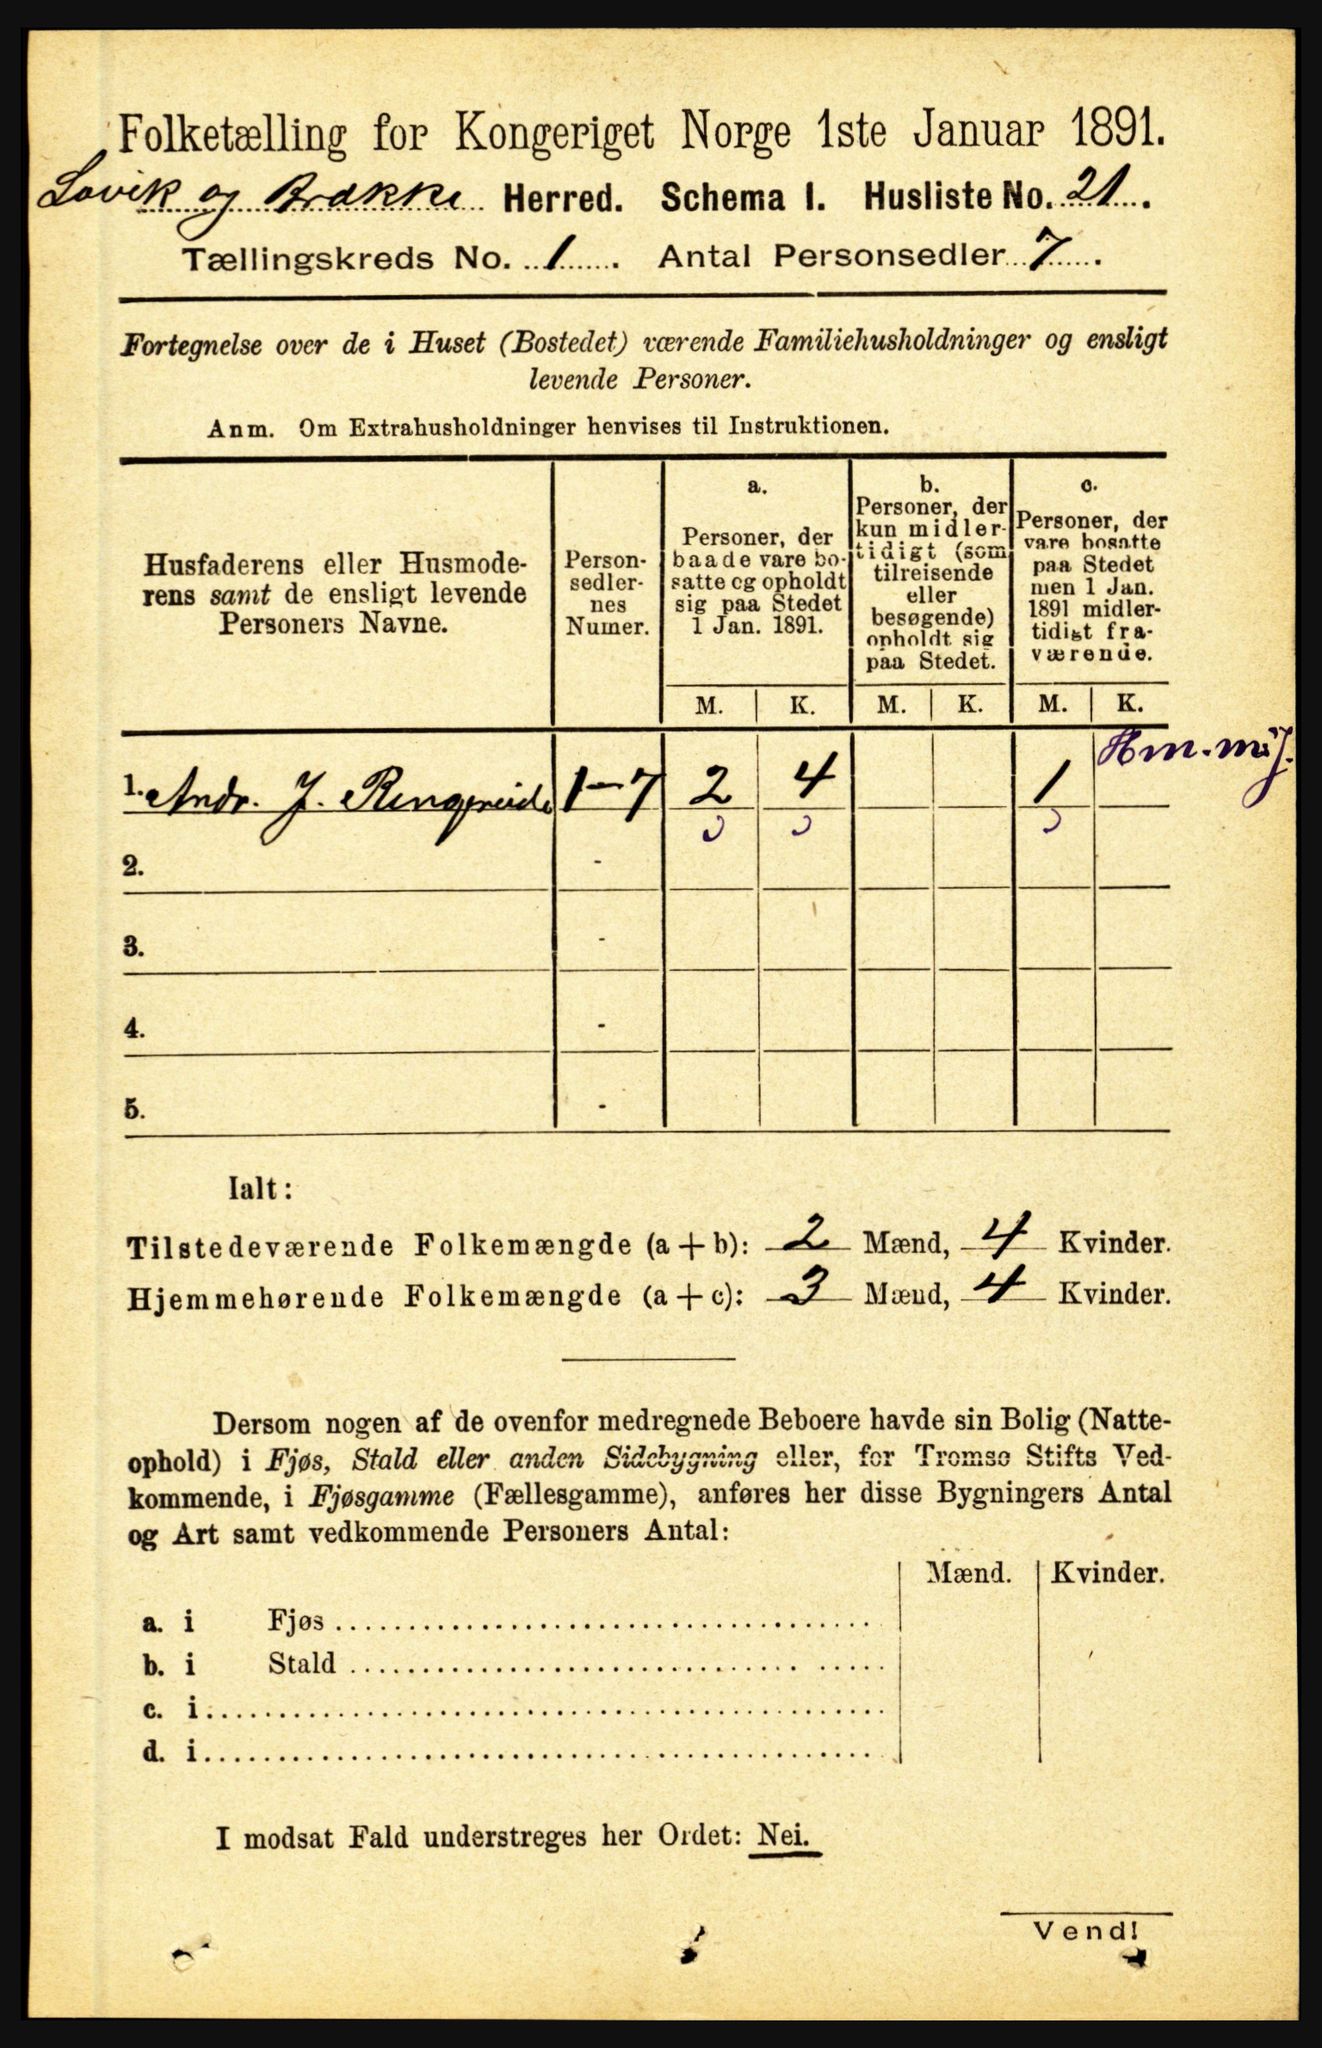 Folketælling for Kongeriget Norge 1ste Januar 1891.
Lavik og Brække Herred. Schema I. Husliste No. 21.
Tællingskreds No. 1. Antal Personsedler 7.
Fortegnelse over de i Huset (Bostedet) værende Familiehusholdninger og ensligt
levende Personer.
Anm. Om Extrahusholdninger henvises til Instruktionen.
Husfaderens eller Husmode-
rens samt de ensligt levende
Personers Navne.
Person-
sedler-
nes
Numer.
a.
Personer, der
baade vare bo-
satte og opholdt
sig paa Stedet
1 Jan. 1891.
b.
Personer, der
kun midler-
tidigt (som
tilreisende
eller
besøgende)
opholdt sig
paa Stedet.
c.
Personer, der
vare bosatte
paa Stedet
men 1 Jan.
1891 midler-
tidigt fra-
værende.
M. K. M. K. M. K.
1. Andr. J. Ringereide 1-7 2 4 1
2. -
3. -
4. -
5. -
Ialt:
Tilstedeværende Folkemængde (a+b): 2 Mænd, 4 Kvinder.
Hjemmehørende Folkemængde (a+c): 3 Mænd, 4 Kvinder.
Dersom nogen af de ovenfor medregnede Beboere havde sin Bolig (Natte-
ophold) i Fjøs, Stald eller anden Sidebygning eller, for Tromsø Stifts Ved-
kommende, i Fjøsgamme (Fællesgamme), anføres her disse Bygningers Antal
og Art samt vedkommende Personers Antal:
Mænd. Kvinder.
a. i Fjøs
b. i Stald
c. i
d. i
I modsat Fald understreges her Ordet: Nei.
Vend!